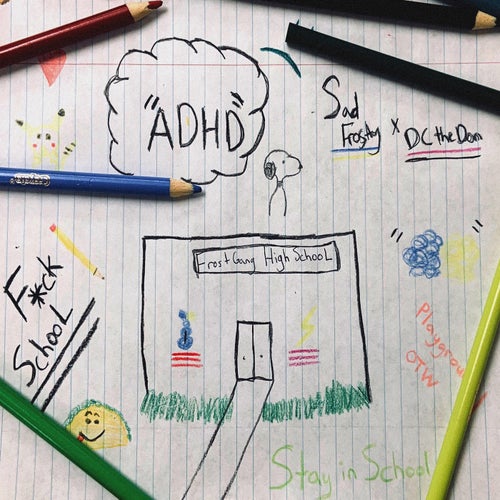 "ADHD"
Sad
Frosty x DC the Don
Frost Gang High School
F*ck
School
Playgrou
OTW
Stay in School